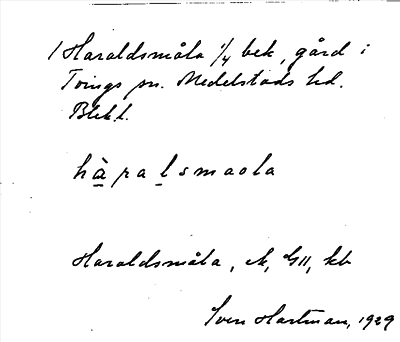 1 Haraldsmåla 1/4 bek, gård i
Tvings sn. Medelstads hd.
Blek. l.
hàralsmaola
Haraldsmåla, ek, GII, kb
Sven Hartman, 1929